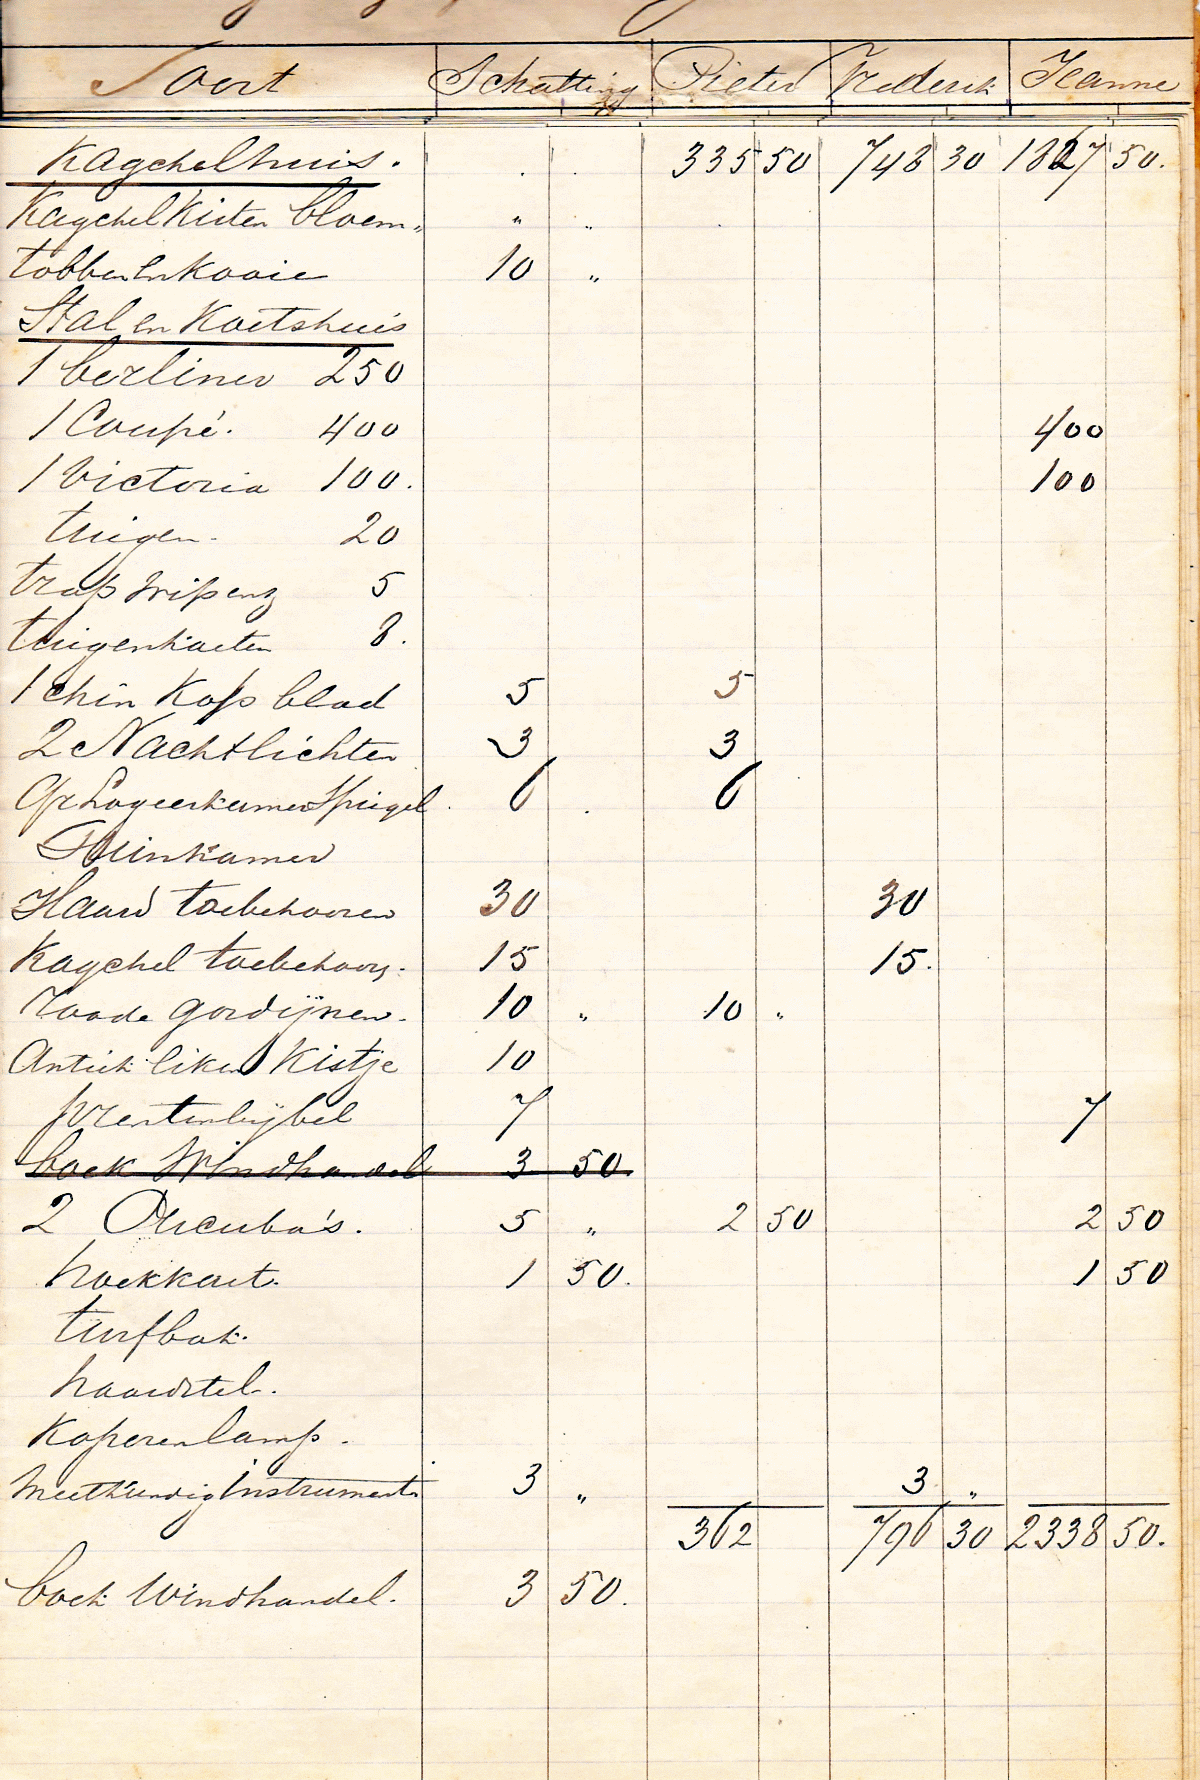 Soort Schatting Pieter Frederik Jeanne
Kagchelhuis. 335 50 748 30 1827 50.
Kagchel Kisten bloem„ „ „
tobben en Kooie 10 „
Stal en Koetshuis
1 berliner 250
1 Coupé. 400 400
1 Victoria 100. 100
tuigen. 20
trap wip enz 5
tuigenkasten 8.
1 chin Kops blad 5 5
2 Nachtlichten 3 3
Gr Logeerkamer Spiegel. 6 . 6
Tuinkamer
Haard toebehooren 30 30
Kagchel toebehoor. 15 15.
roode gordijnen. 10 „ 10 „
Antiek eiken Kistje 10
prentenbijbel 7 7
boek Windhandel 3 50
2 Aucuba's. 5 „ 2 50 2 50
hoekkast. 1 50. 1 50
turfbak.
haardstel.
Koperen lamp.
Meetkundig Instrument 3 „ 3 „
362 796 30 2338 50.
boek Windhandel. 3 50.